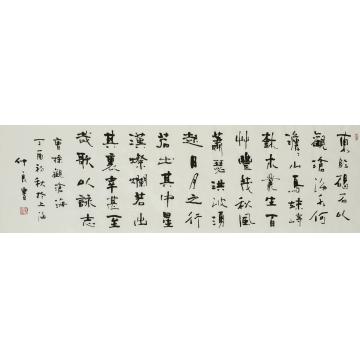 東臨碣石以
觀滄海水何
澹〻山島竦峙
樹木叢生百
艸豐茂秋風
蕭瑟洪波湧
起日月之行
若出其中星
漢燦爛若出
其裏幸甚至
哉歌以詠志
曹操觀滄海
丁酉初秋於上海
仲良書